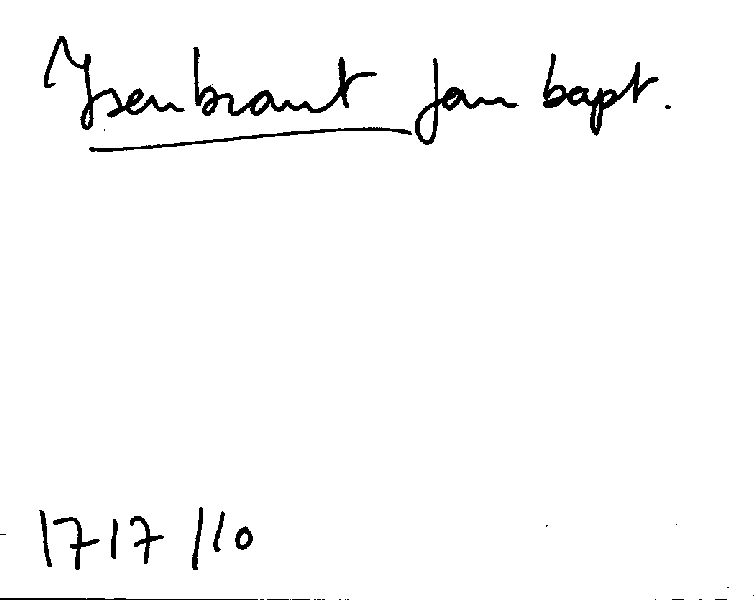 Ysenbrant Jan bapt.
1717 / 10